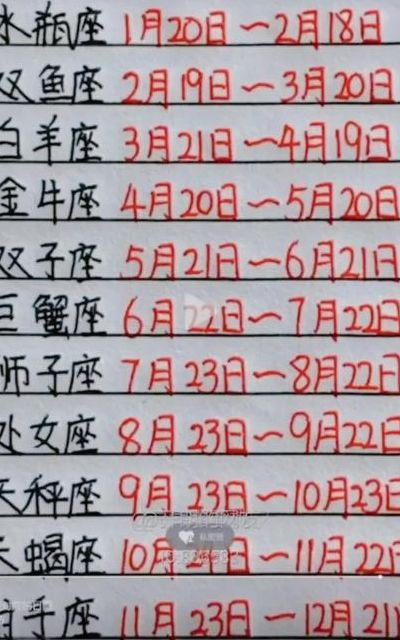 水瓶座 1月20日～2月18日
双鱼座 2月19日～3月20日
白羊座 3月21日～4月19日
金牛座 4月20日～5月20日
双子座 5月21日～6月21日
巨蟹座 6月22日～7月22日
狮子座 7月23日～8月22日
处女座 8月23日～9月22日
天秤座 9月23日～10月23日
天蝎座 10月 ～11月22日
射手座 11月23日～12月21日